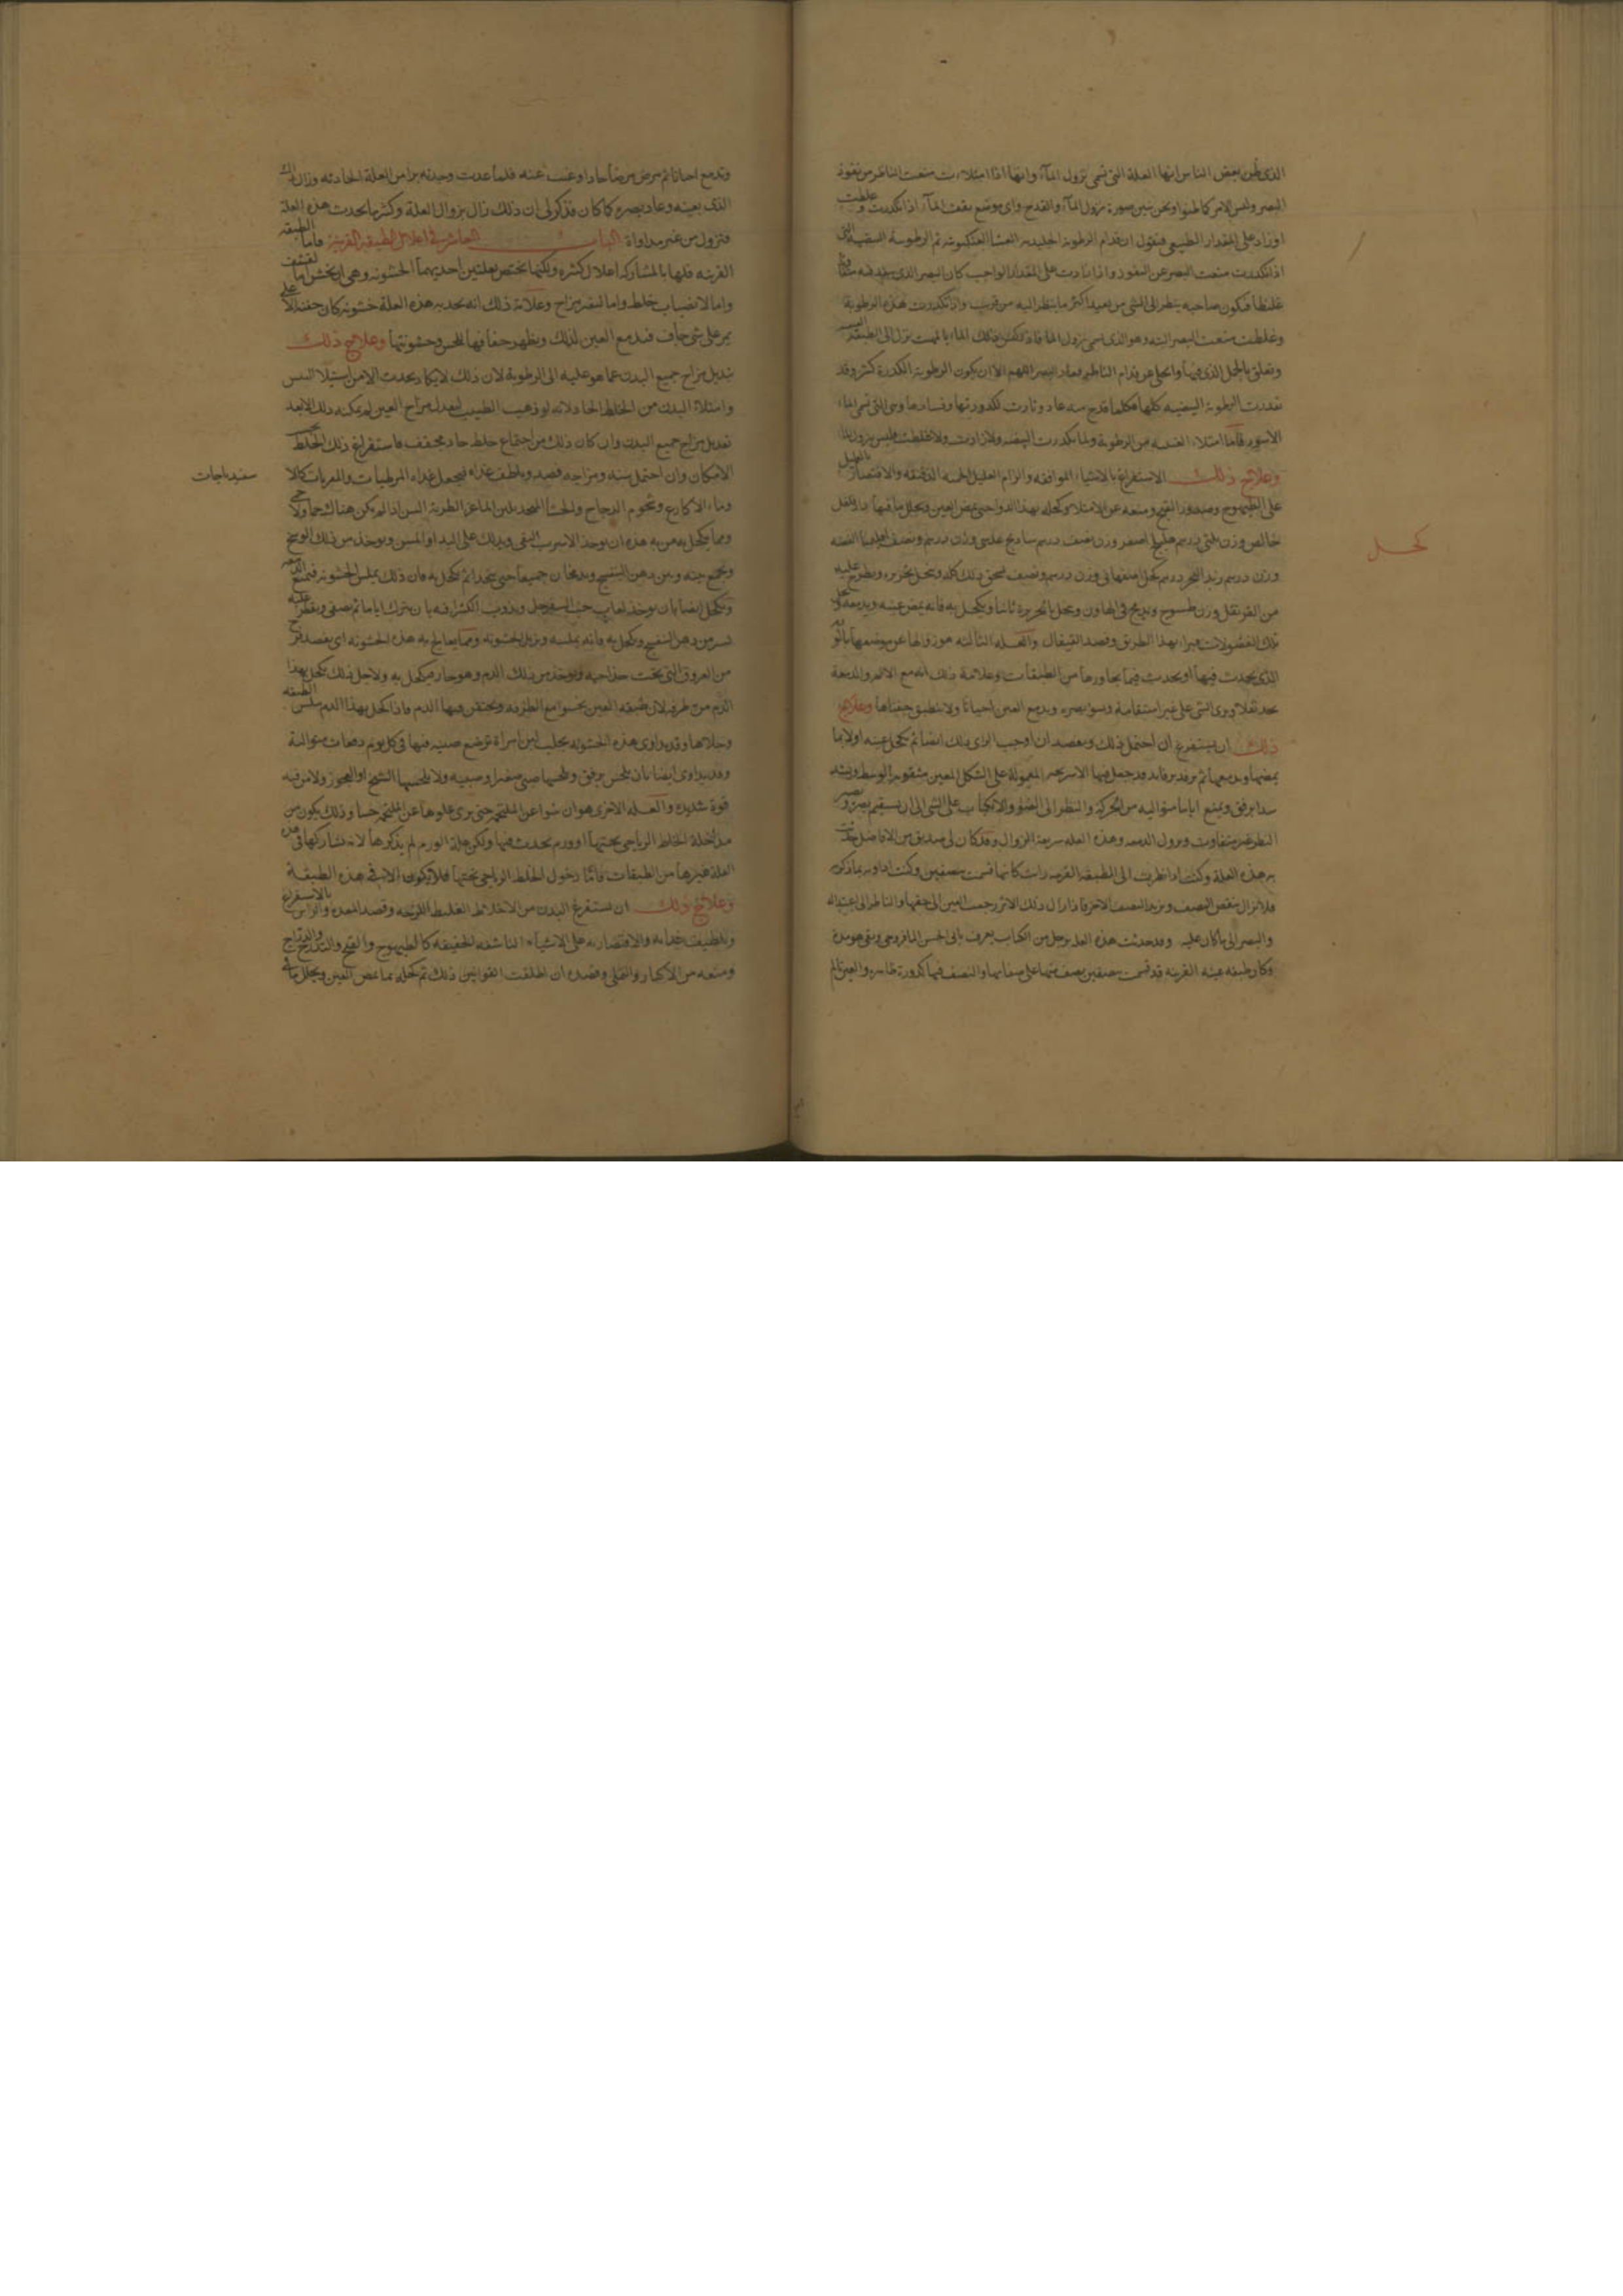 الذى ظن بعض الناس انها العلة التى تسمى نزول الماء وانها اذا امتلاءت منعت الناظر من نفوذ
البصر وليس الامر كما ظنوا ونحن نبين صورة نزول الماء والقدح واى موضع يقف الماء اذا تكدرت وغلظت
او زاد على المقدار الطبيعى فنقول ان قدام الرطوبة الجليدية الغشا العنكبوتية ثم الرطوبة البيضية التى
اذا تكدرت منعت البصر عن النفوذ واذا زادت على المقدار الواجب كان البصر الذى ينفذ فيه
غليظا فيكون صاحبه ينظر الى الشى من بعيد اكثر ما ينظر اليه من قريب واذا تكدرت هذه الرطوبة
وغلظت منعت البصر البتة وهو الذى يسمى نزول الماء فاذا ذلك الماء بالمهت نزل الى الطبقة
وتعلق بالخمل الذى فيها وانجلى عن قدام الناظر فعاد البصر اللهم الا ان يكون الرطوبة الكدرة كثر وقد
تكدرت الرطوبة البيضية كلها فكلما قدح منه عاد وثارت لكدورتها وفسادها وهى التى تسمى الماء
الاسود فاما امتلاء العنبية من الرطوبة ولما تكدرت البيضية ولا زادت ولا غلظت فليس بنزول الماء
وعلاج ذلك الاستفراغ بالاشياء الموافقة والزام العليل الحمية الدقيقة والاقتصار بالعليل
على الطيهوج وصدور القبج ومنعه عن الامتلاء وكحله بهذا الدوا حتى يمض العين ويحلل ما فيها دار فلفل
خالص وزن ثلثى درهم هليلج اصفر وزن نصف درهم سادنج عدسى وزن درهم ونصف اقليميا الفضة
وزن درهم زبد البحر درهم كحل اصفهانى وزن درهم ونصف يسحق ذلك كله وينخل بحريرة ويطرح عليه
من القرنفل وزن طسوج ويدبج فى الهاون وينخل بالحريرة ثانيا ويكتحل به فانه يمض عينه ويدمعه
تلك الفضولات فيبراء بهذا الطريق وفصد القيفال والعلة الثالثة هو زوالها عن موضعها بالتو
الذى يحدث فيها او يحدث فيما يجاورها من الطبقات وعلامة ذلك انه مع الالم والدمعة
يجد ثقلا ويرى الشى على غير استقامة ويسوا بصره ويدمع العين احيانا ولا ينطبق جفناها وعلاج
ذلك ان يستفرغ ان احتمل ذلك ويفصد ان اوجب الراى ذلك ايضا ثم يكحل عينه اولا بما
يمضها ويدمعها ثم يرفد برفايد قد جعل فيها الاسرنج المعمولة على الشكل المعين مثقوبة الوسط ويشد
شدا برفق ويمنع اياما متوالية من الحركة والنظر الى الضوء والانكباب على الشى الى ان يستقيم بصره
النظر غير متفاوت ويزول الدمعة وهذه العلة سريعة الزوال وقد كان لى صديق من الافاضل حدثت
به هذه العلة وكنت اذا نظرت الى الطبقة القرنية رايت كانها قسمت بنصفين وكنت اداويه بما ذكرته
فلا يزال ينقص النصف ويزيد النصف الاخر فاذا زال ذلك الاثر رجعت العين الى جفنها والناظر الى اعتداله
والبصر الى ما كان عليه وقد حدثت هذه العلة برجل من الكتاب يعرف بابى الحسن وبقى هو مدة
وكان طبقة عينه القرنية قد قسمت بنصفين نصف منها على صفايها والنصف فيها كدورة ظاهرة والعين تالم
كحل
وتدمع احيانا ثم مرض مرضا حادا وغبت عنه فلما عدت وجدته برا من العلة الحادثة وزال
الذى بعينه وعاد بصره كما كان فذكر لى ان ذلك زال بزوال العلة وكثيرا ما يحدث هذه العلة
فتزول من غير مداواة الباب العاشر فى اعلال الطبقة القرنية فاما الطبقة
القرنية فلها بالمشاركة اعلال كثيرة ولكنها تختص بعلتين احديهما الخشونة وهى ان يخشن اما لقشف
واما لانصباب خلط واما لتغير مزاج وعلامة ذلك انه يجد به هذه العلة خشونة كان جفنه الاعلى
يمر على شى جاف فتدمع العين لذلك ويظهر جفافها للحس وخشونتها وعلاج ذلك
تبديل مزاج جميع البدن عما هو عليه الى الرطوبة لان ذلك لا يكاد يحدث الا من استيلا اليبس
وامتلاء البدن من الخلط الحاد لانه لو ذهب الطبيب ليعدل مزاج العين لم يمكنه ذلك الا بعد
تعديل مزاج جميع البدن وان كان ذلك من اجتماع خلط حاد مجفف فاستفراغ ذلك الخلط
الامكان وان احتمل سنه ومزاجه فصد ويلطف غذاه فيجعل غذاه المرطبات والمغريات كالا
وماء الاكارع وشحوم الدجاج والحشا المتخذ بلبن الماعز الطرية اللبن اذا لم يكن هناك حما ولا
ومما يكحل به من به هذه ان يوخذ الاسرب النقى ويدلك على اليد او المسن ويوخذ من ذلك الوسخ
ويجمع بينه وبين دهن البنفسج ويدعكان جميعا حتى يتحدا ثم يكحل به فان ذلك يملس الخشونة فيمنع الدمعة
ويكحل ايضا بان يوخذ لعاب حب السفرجل ويذوب الكثيرا فيه بان يترك اياما ثم يصفى ويقطر عليه
يسير من دهن البنفسج ويكحل به فانه يملسه ويزيل الخشونة ومما يعالج به هذه الخشونة ان يفصد
من العروق التى تحت جناحيه ويوخذ من ذلك الدم وهو حار فيكحل به ولاجل ذلك يكحل بهذا
الدم من طرفه لان طبقة العين تخشن مع الطرفة ويحتقن فيها الدم فاذا كحل بهذا الدم ملس الطبقة
وجلاها وقد يداوى هذه الخشونة بحليب لبن امراة ترضع صبية فيها فى كل يوم دفعات متوالية
وقد يداوى ايضا بان يلحس برفق ويلحسها صبى صغير او صبية ولا يلحسها الشيخ او العجوز ولا من فيه
قوة شديدة والعلة الاخرى هو ان تنتوا عن الملتحم حتى يرى علوها عن الملتحم حسا وذلك يكون من
مداخلة الخلط الرياحى تحتها او ورم يحدث فيها ولكن علة الورم لم يذكرها لانه تشاركها فى هذه
العلة غيرها من الطبقات فاما دخول الخلط الرياحى تحتها فلا يكون الا فى هذه الطبقة
وعلاج ذلك ان يستفرغ البدن من الاخلاط الغليظة اللزجة وقصد المعدة والراس بالاستفراغ
وتلطيف غذاه والاقتصار به على الاشياء الناشفة الخفيفة كالطيهوج والقبج والتدرج والدراج
ومنعه من الاكثار والتملى وفصده ان اطلقت القوانين ذلك ثم كحله بما يمض العين ويحلل ما فى
سفيدباجات